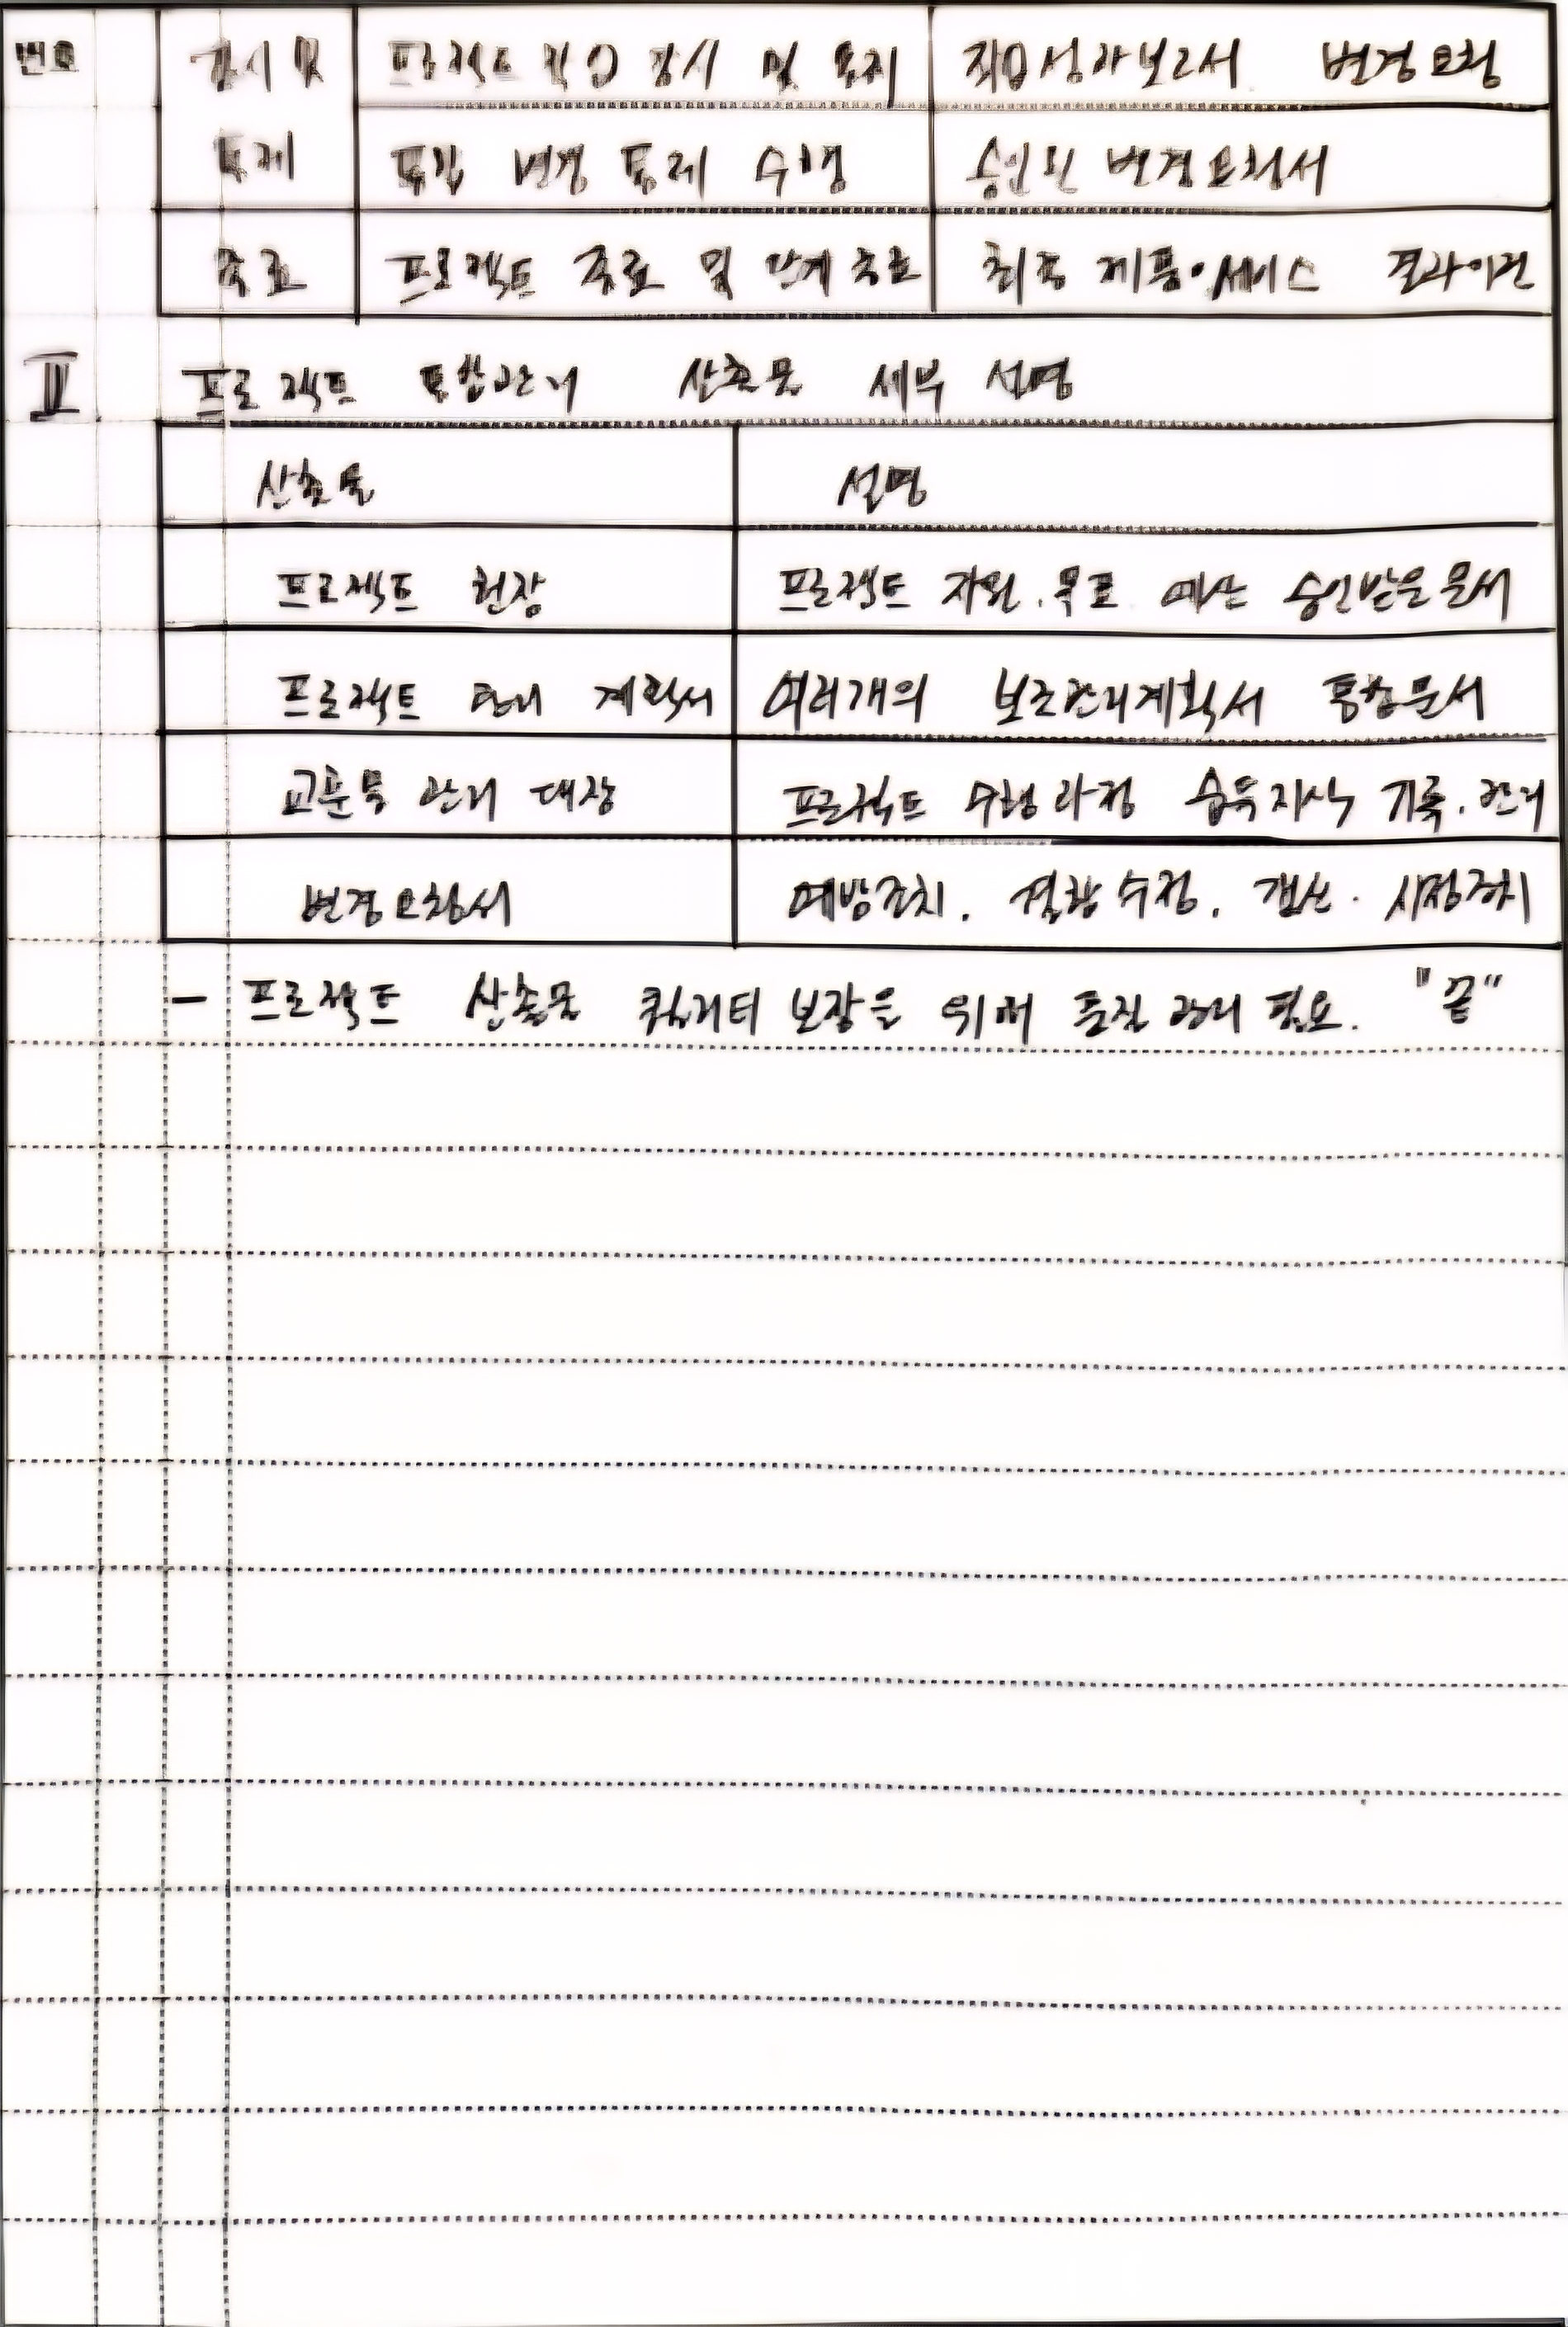 번호 감시 및 프로젝트 작업 감시 및 통제 작업성과보고서 변경요청
통제 통합 변경 통제 수행 승인된 변경요청서
종료 프로젝트 종료 및 단계 종료 최종 제품·서비스 결과이관
Ⅲ 프로젝트 통합관리 산출물 세부 설명
산출물 설명
프로젝트 헌장 프로젝트 자원, 목표 예산 승인받은 문서
프로젝트 관리 계획서 여러개의 보조관리계획서 통합문서
교훈 관리 대장 프로젝트 수행과정 습득지식 기록, 관리
변경요청서 예방조치, 결함수정, 갱신, 시정조치
- 프로젝트 산출물 퀄리티 보장을 위해 품질 관리 필요. "끝"